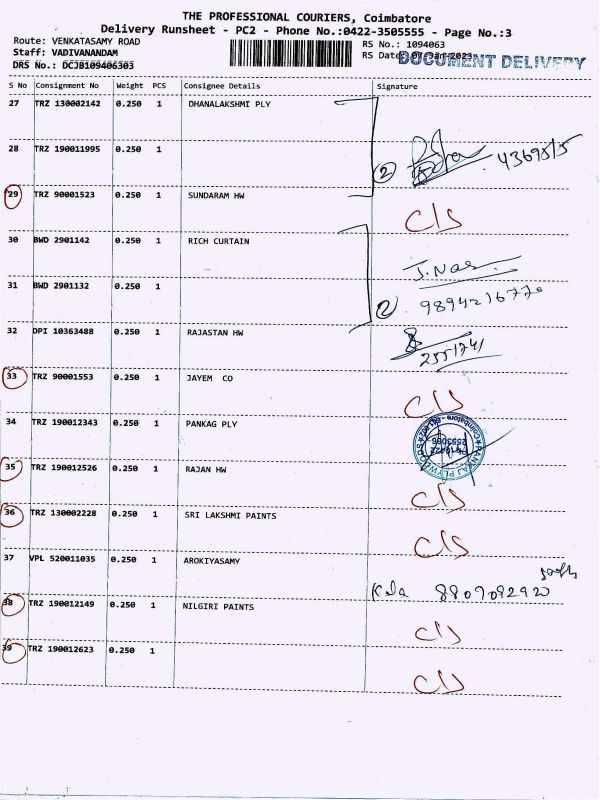 THE PROFESSIONAL COURIERS, Coimbatore
Delivery Runsheet - PC2 - Phone No.:0422-3505555 - Page No.:3
Route: VENKATASAMY ROAD
RS No.: 1094063
Staff: VADIVANANDAM
RS Date: 07-Jan-2023
DOCUMENT DELIVERY
DRS No.: DCJB109406303
S No Consignment No Weight PCS Consignee Details Signature
27 TRZ 130002142 0.250 1 DHANALAKSHMI PLY
28 TRZ 190011995 0.250 1
2
29 TRZ 90001523 0.250 1 SUNDARAM HW C/S
30 BWD 2901142 0.250 1 RICH CURTAIN
J. Nas
31 BWD 2901132 0.250 1
2 9894216770
32 DPI 10363488 0.250 1 RAJASTAN HW
2551741
33 TRZ 90001553 0.250 1 JAYEM CO C/S
34 TRZ 190012343 0.250 1 PANKAG PLY
35 TRZ 190012526 0.250 1 RAJAN HW C/S
36 TRZ 130002228 0.250 1 SRI LAKSHMI PAINTS C/S
37 VPL 520011035 0.250 1 AROKIYASAMY
8807082920
38 TRZ 190012149 0.250 1 NILGIRI PAINTS C/S
39 TRZ 190012623 0.250 1 C/S